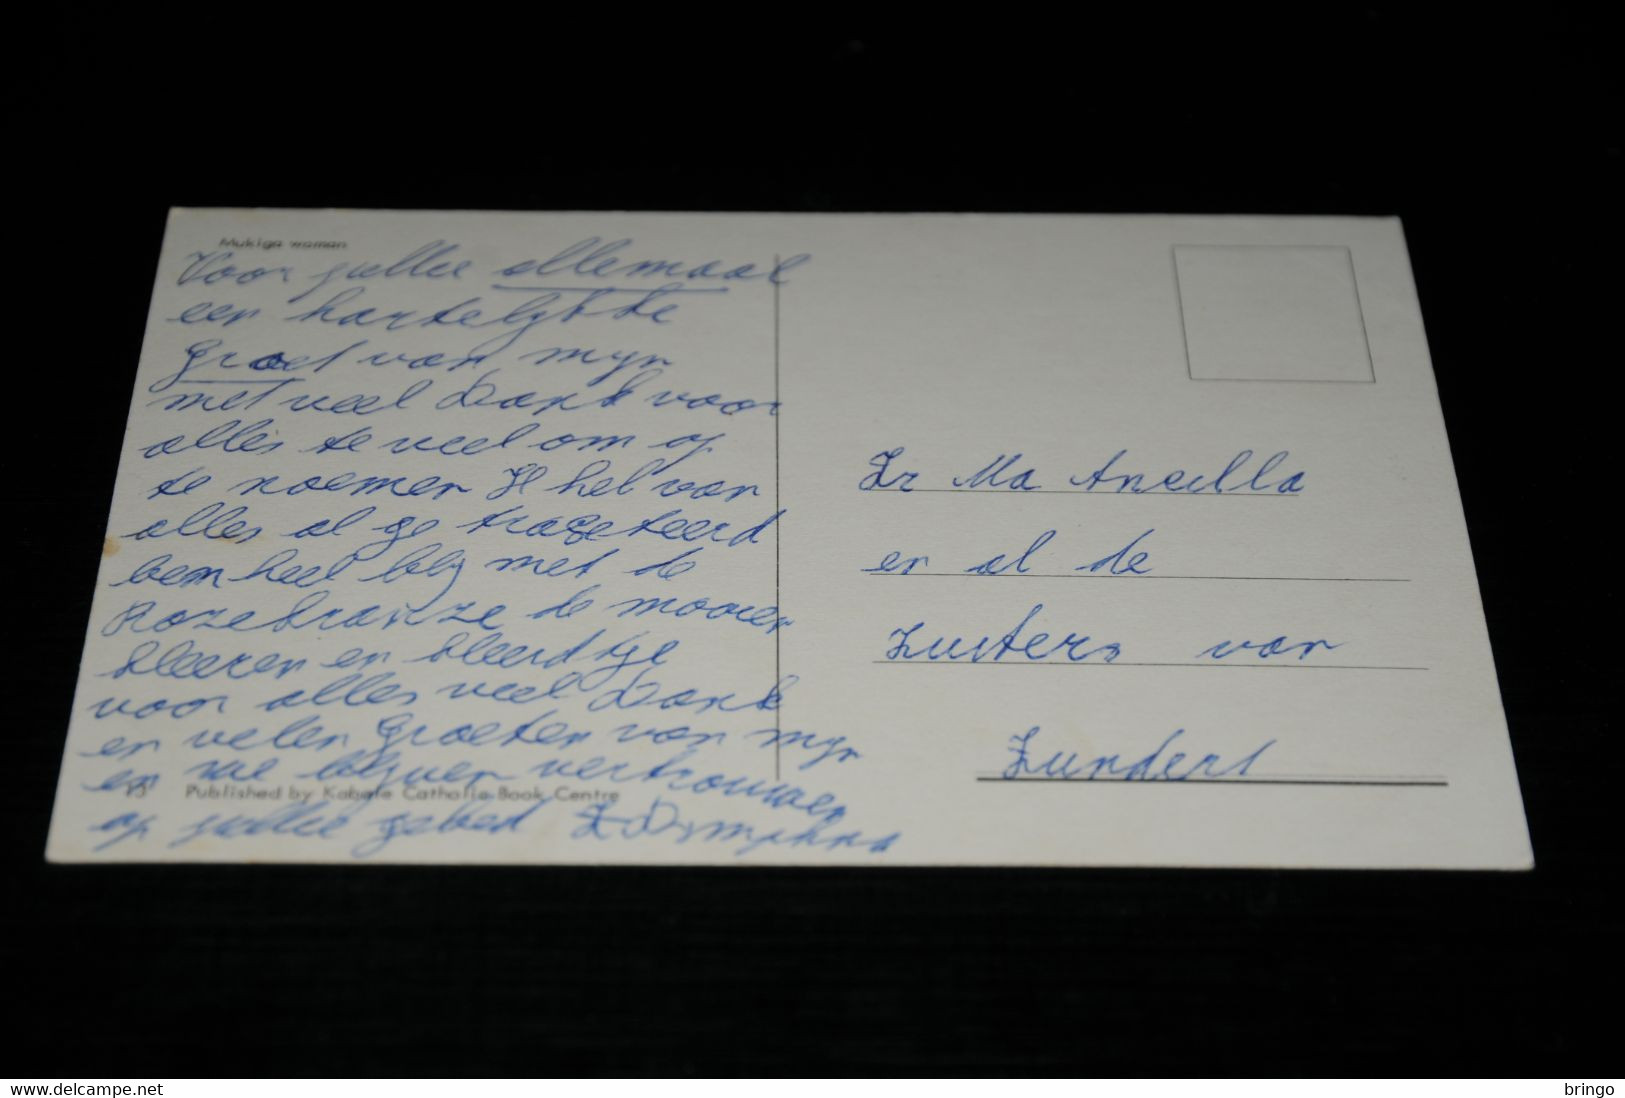 Mukiga woman
Voor jullie allemaal
een hartelykke
groet van myn
met veel Dank voor
alles te veel om op
te noemen Ik heb van
alles al ge trakteerd
ben heel bly met de
Rozekranze de mooien
kleeren en kleedtje
voor alles veel Dank
en velen Groeten van myn
en we blyven vertrouwen
op jullie gebed Z Dymphna
13 Published by Kabale Catholic Book Centre
Zr Ma Ancilla
en al de
Zusters van
Zundert
www.delcampe.net
bringo